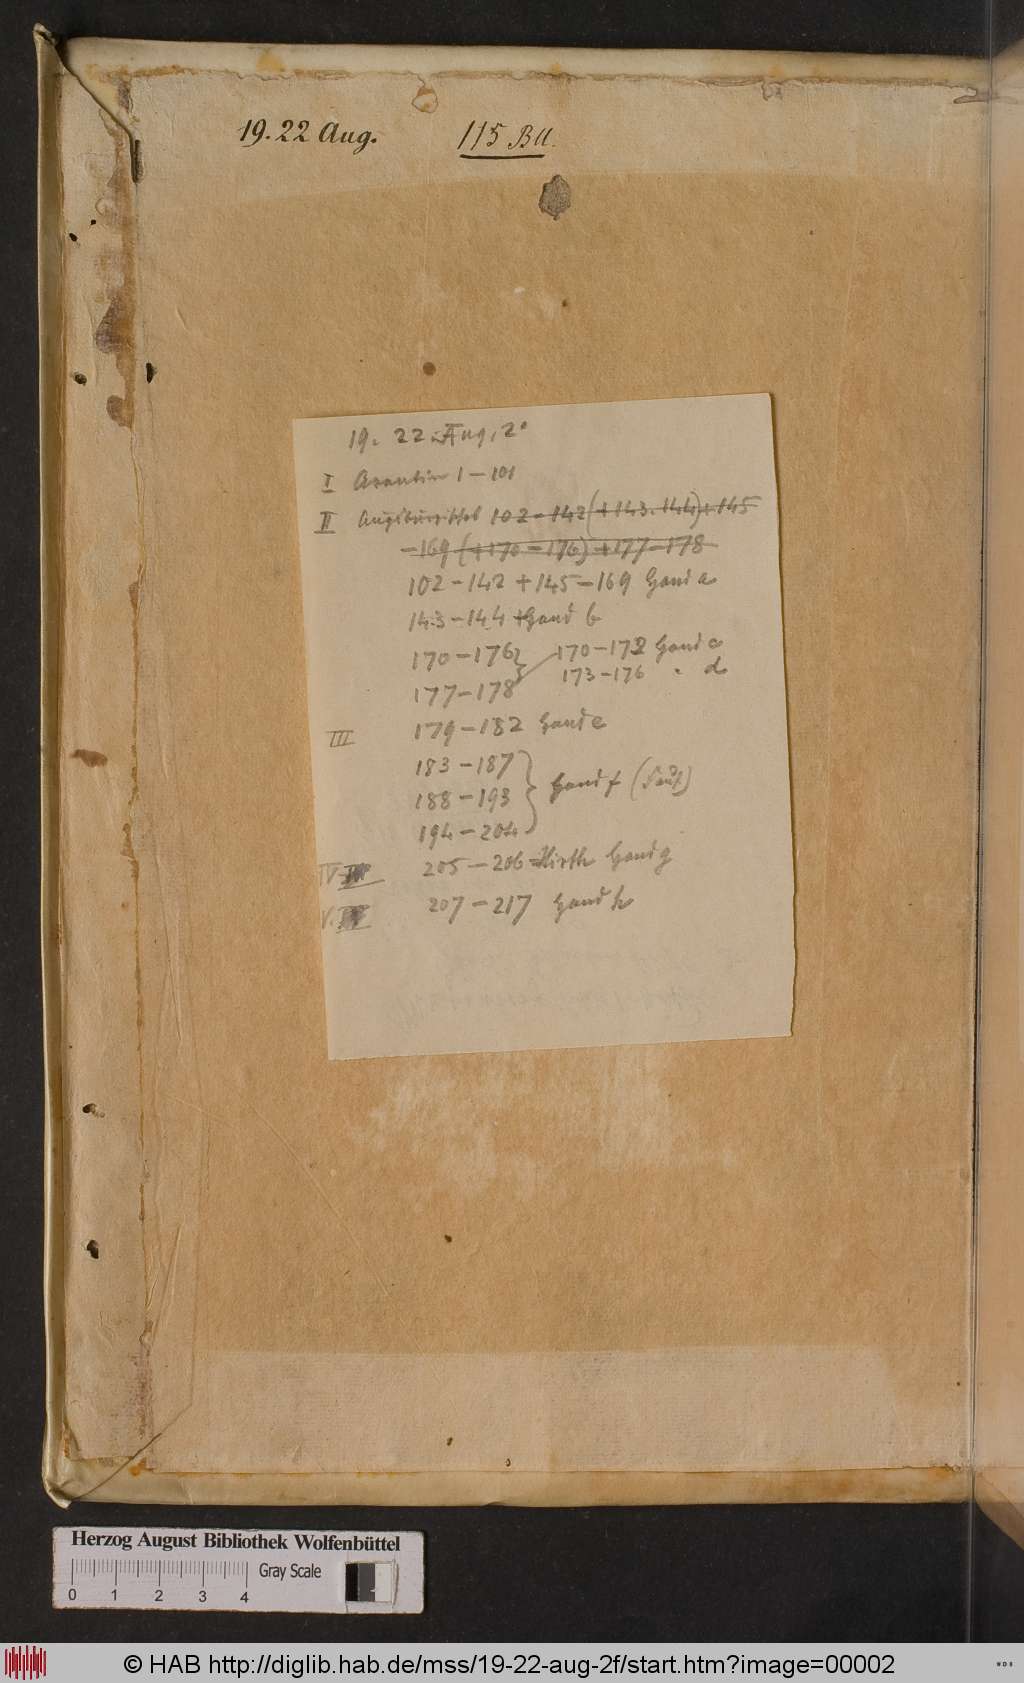 19. 22 Aug. 115 Bll.
19. 22. Aug. 2°
I Aventin 1 – 101
II 102 – 142 (+ 143. 144) + 145
– 169 (+ 170 – 176) + 177 – 178
102 – 142 + 145 – 169 Hand a
143 – 144 Hand b
170 – 176 } 170 – 172 Hand c
177 – 178 173 – 176 " d
III 179 – 182 Hand e
183 – 187
188 – 193 } Hand f
194 – 204
IV 205 – 206 Hand g
V. 207 – 217 Hand h
Herzog August Bibliothek Wolfenbüttel
Gray Scale
0 1 2 3 4
© HAB http://diglib.hab.de/mss/19-22-aug-2f/start.htm?image=00002